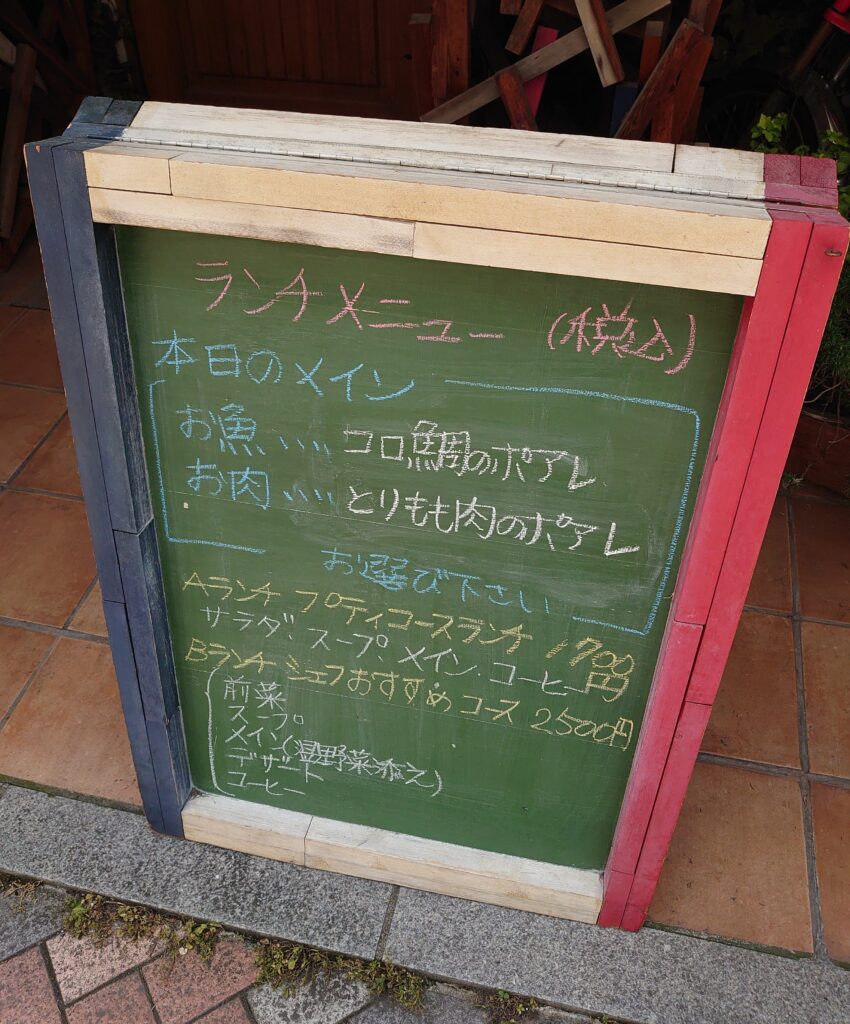 ランチメニュー (税込)
本日のメイン
お魚、、、、 コロ鯛のポアレ
お肉、、、、 とりもも肉のポアレ
お選び下さい
Aランチ プティコースランチ 1700円
サラダ、スープ、メイン、コーヒー
Bランチ シェフおすすめコース 2500円
前菜
スープ
メイン(温野菜添え)
デザート
コーヒー